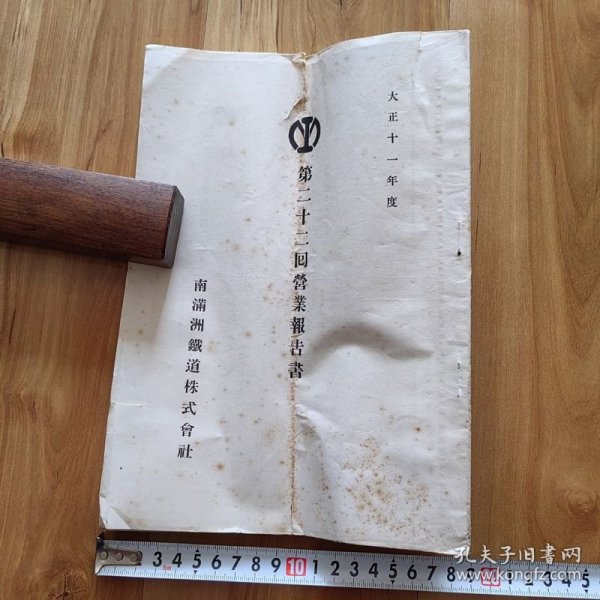 大正十一年度
第二十二回營業報告書
南滿洲鐵道株式會社
3 4 5 6 7 8 9 10 1 2 3 4 5 6 7 8 9 20 1 2 3 4 5
孔夫子旧书网
www.kongfz.com